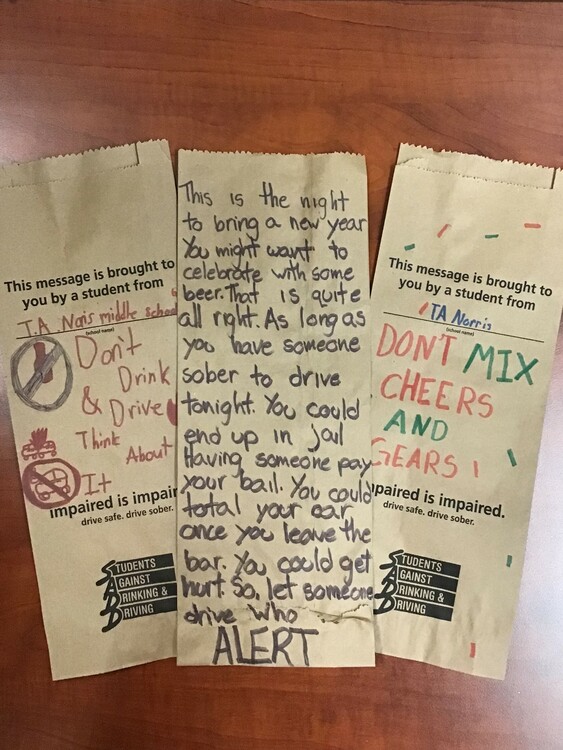 This message is brought to
you by a student from
T.A. Noris middle school
(school name)
Don't
Drink
& Drive
Think
About
It
impaired is impair
drive safe. drive sober.
STUDENTS
AGAINST
DRINKING &
DRIVING
This is the night
to bring a new year
You might want to
celebrate with some
beer. That is quite
all right. As long as
you have someone
sober to drive
tonight. You could
end up in jail
Having someone pay
your bail. You could
total your car
once you leave the
bar. You could get
hurt. So, let someone
drive who
ALERT
This message is brought to
you by a student from
TA Norris
(school name)
DON'T MIX
CHEERS
AND
GEARS
paired is impaired.
drive safe. drive sober.
STUDENTS
AGAINST
DRINKING &
DRIVING